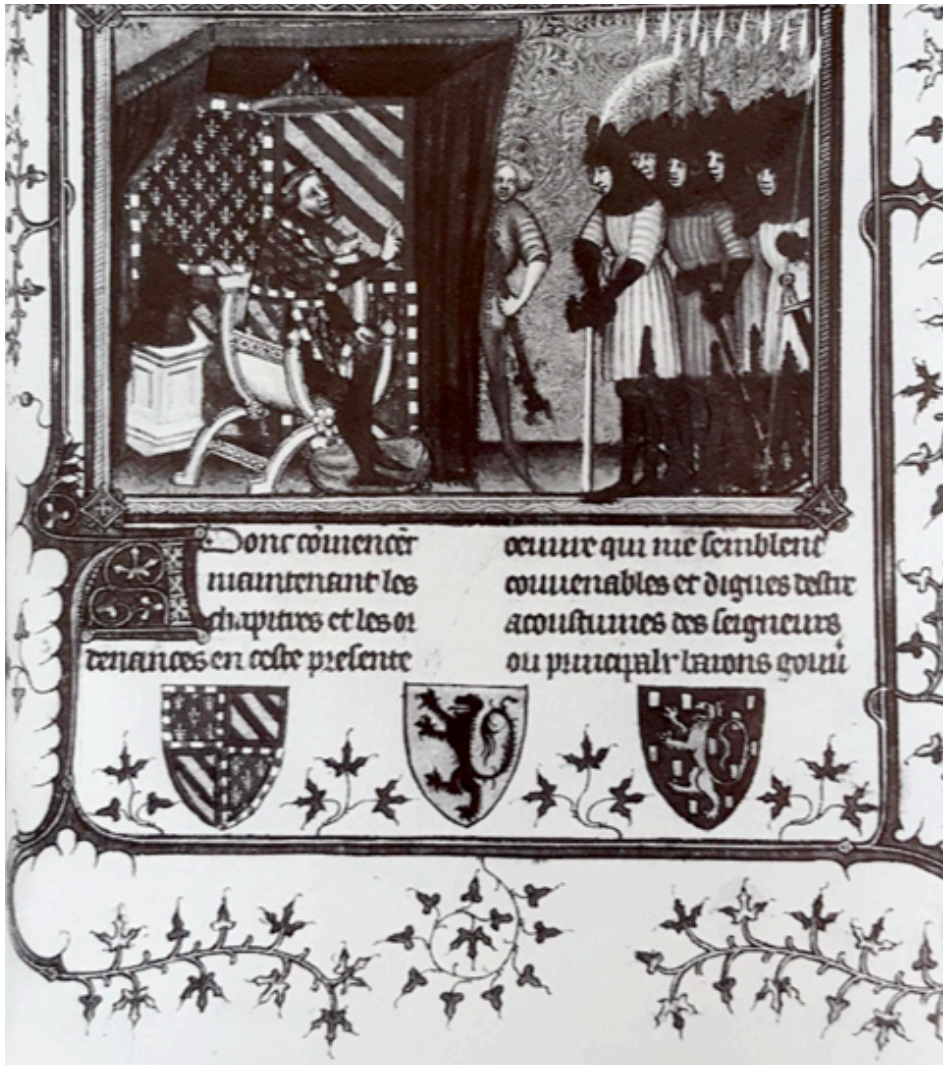 ADonc cōmencer
maintenant les
chapitres et les or
denances en ceste presente
oeuure qui me semblent
conuenables et dignes destre
acoustumes des seigneurs
ou barons